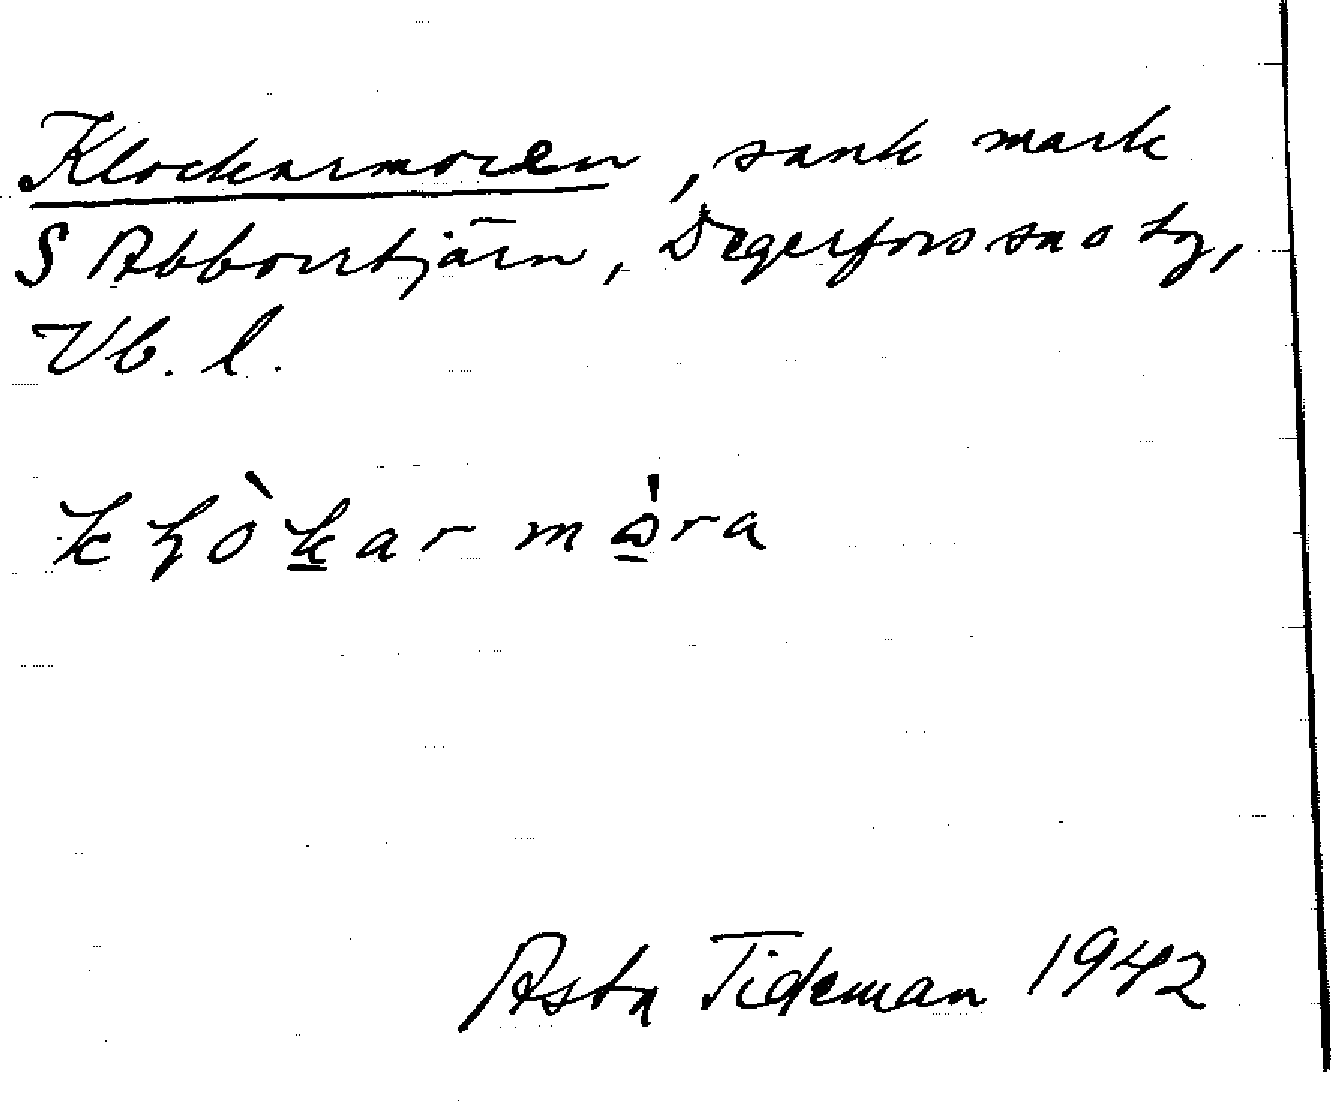 Klockarmoren, sank mark
S Abborrtjärn, Degerfors sn o tg,
Vb. l.
Asta Tideman 1942